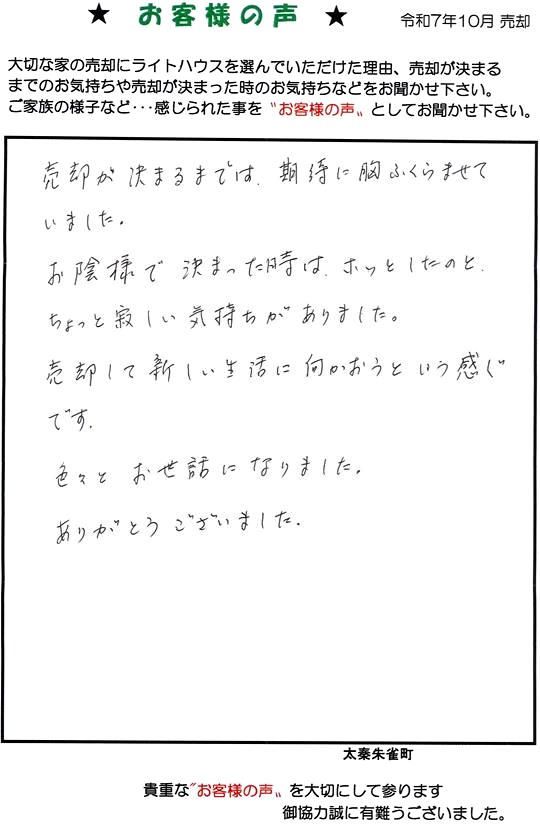 ★ お客様の声 ★
令和7年10月 売却
大切な家の売却にライトハウスを選んでいただけた理由、売却が決まる
までのお気持ちや売却が決まった時のお気持ちなどをお聞かせ下さい。
ご家族の様子など･･･感じられた事を〝お客様の声〟としてお聞かせ下さい。
売却が決まるまでは、期待に胸ふくらませて
いました。
お陰様で決まった時は、ホッとしたのと、
ちょっと寂しい気持ちがありました。
売却して新しい生活に向かおうという感じ
です。
色々とお世話になりました。
ありがとうございました。
太秦朱雀町
貴重な〝お客様の声〟を大切にして参ります
御協力誠に有難うございました。